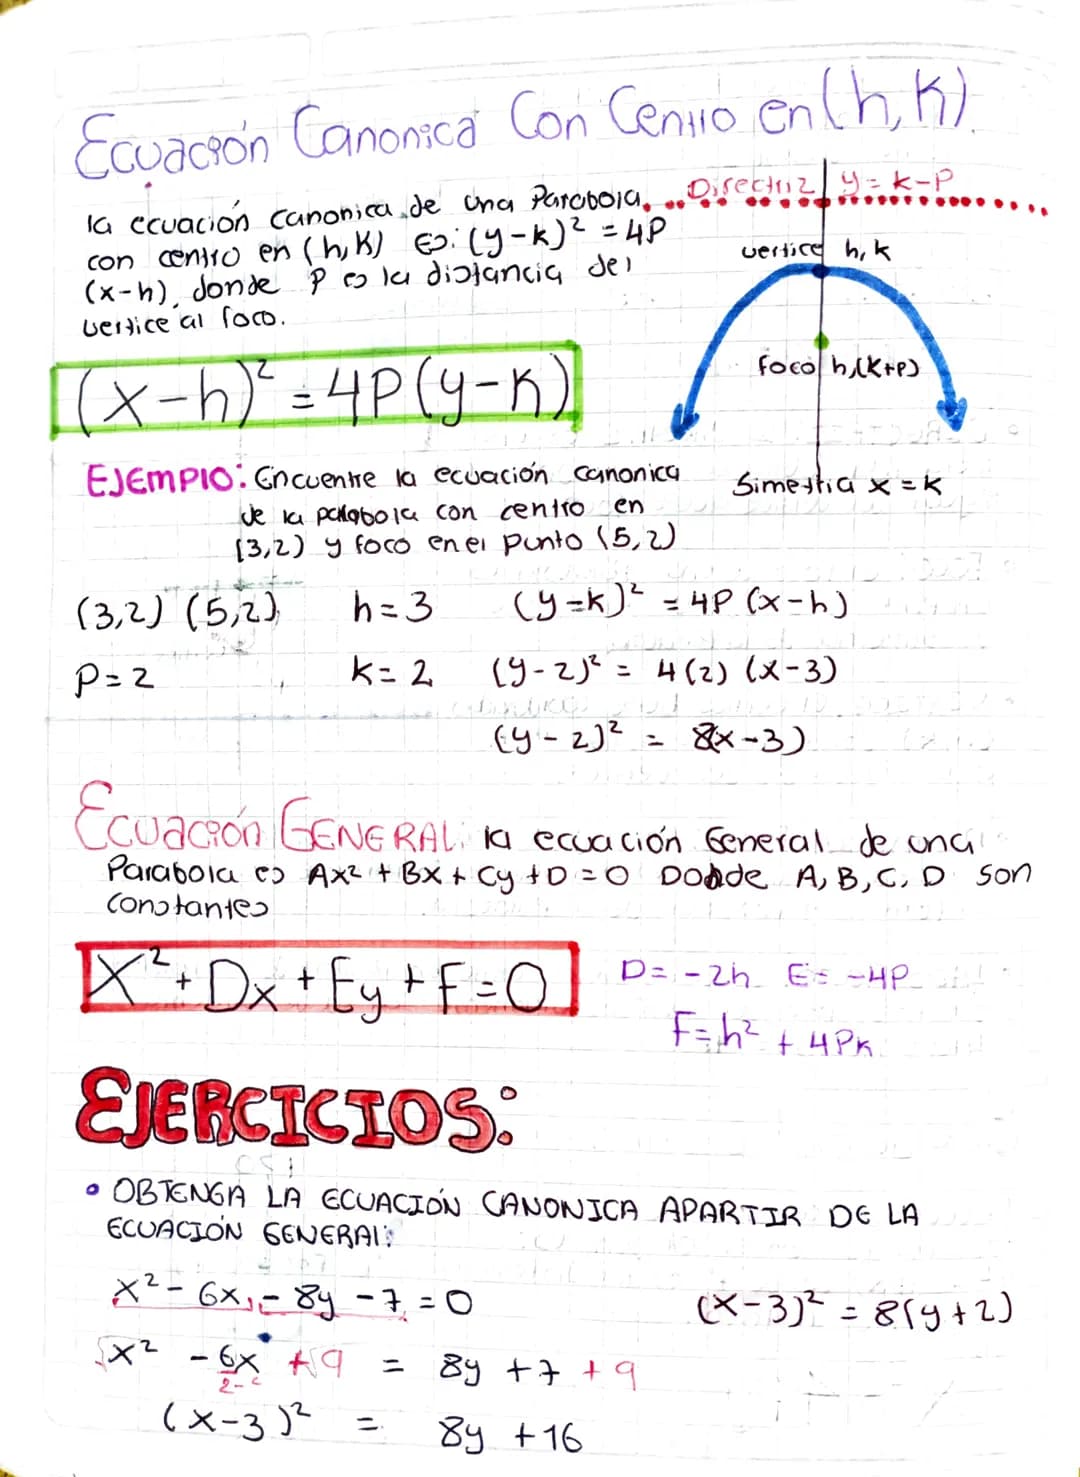 Ecuación Canonica Con Centro en (h, k).
la ecuación canonica de una Parabola
con centro en (h, k) es: (y-k)² = 4P
(x-h), donde P es la distancia del
vertice al foco.
Directriz y = k-P
vertice h, k
foco h, (k+p)
Simestria x = k
(x-h)² = 4P(y-k)
EJEMPlO: Encuentre la ecuación canonica
de la parabola con centro en
(3,2) y foco en el punto (5,2)
(3,2) (5,2) h = 3 (y-k)² = 4P (x-h)
P = 2 k = 2 (y-2)² = 4(2) (x-3)
(y-2)² = 8(x-3)
Ecuación GENERAL: la ecuación General de una
Parabola es Ax² + Bx + Cy + D = 0 Donde A, B, C, D son
constantes
X² + Dx + Ey + F = 0
D = -2h E = -4P
F = h² + 4Pk
EJERCICIOS:
• OBTENGA LA ECUACIÓN CANONICA APARTIR DE LA
ECUACIÓN GENERAl:
x² - 6x - 8y - 7 = 0 (x-3)² = 8(y+2)
x² - 6x + 9 = 8y + 7 + 9
(x-3)² = 8y + 16